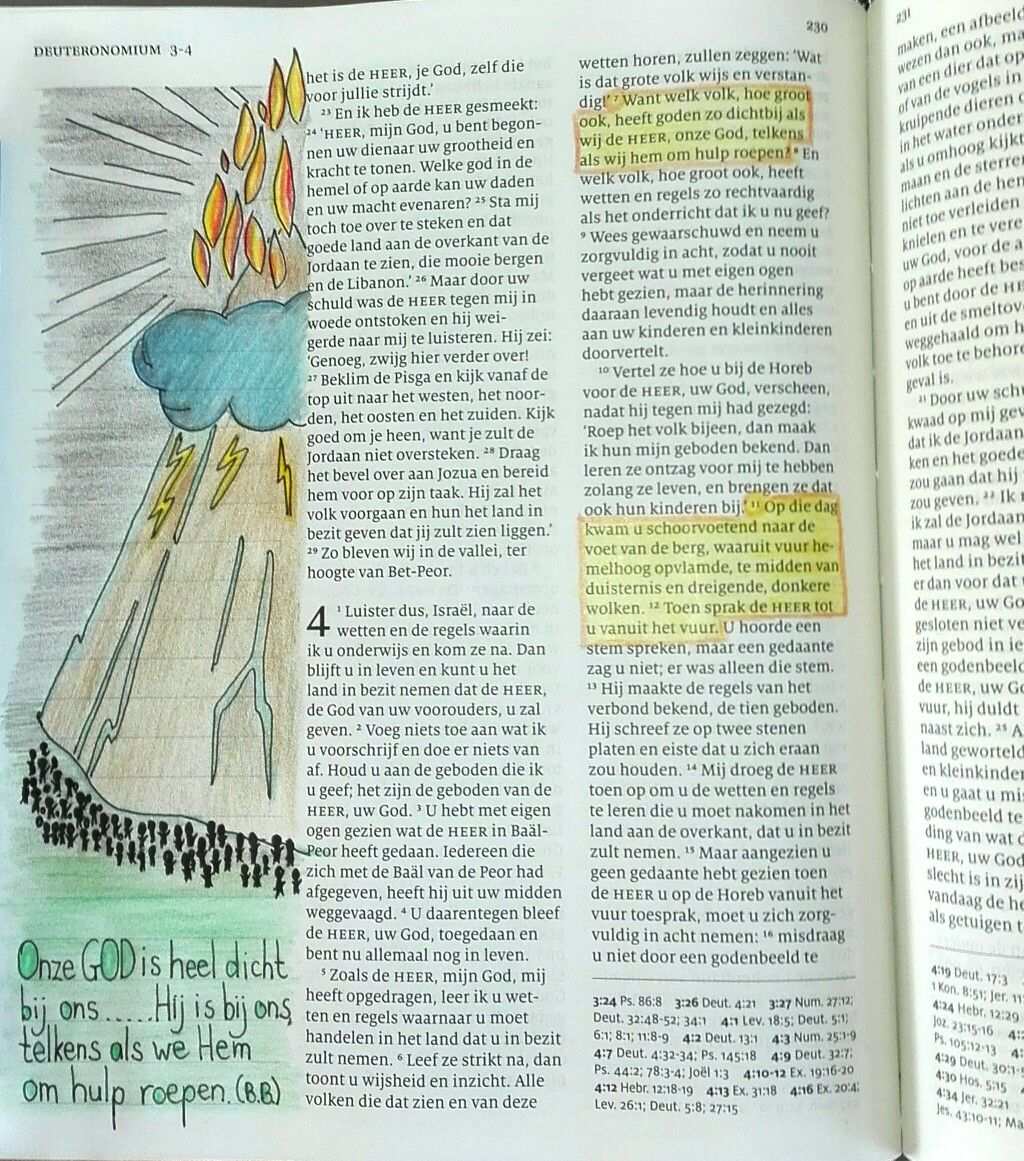 DEUTERONOMIUM 3-4
230
het is de HEER, je God, zelf die
voor jullie strijdt.’
²³ En ik heb de HEER gesmeekt:
²⁴ ‘HEER, mijn God, u bent begon-
nen uw dienaar uw grootheid en
kracht te tonen. Welke god in de
hemel of op aarde kan uw daden
en uw macht evenaren? ²⁵ Sta mij
toch toe over te steken en dat
goede land aan de overkant van de
Jordaan te zien, die mooie bergen
en de Libanon.’ ²⁶ Maar door uw
schuld was de HEER tegen mij in
woede ontstoken en hij wei-
gerde naar mij te luisteren. Hij zei:
‘Genoeg, zwijg hier verder over!
²⁷ Beklim de Pisga en kijk vanaf de
top uit naar het westen, het noor-
den, het oosten en het zuiden. Kijk
goed om je heen, want je zult de
Jordaan niet oversteken. ²⁸ Draag
het bevel over aan Jozua en bereid
hem voor op zijn taak. Hij zal het
volk voorgaan en hun het land in
bezit geven dat jij zult zien liggen.’
²⁹ Zo bleven wij in de vallei, ter
hoogte van Bet-Peor.
4 ¹ Luister dus, Israël, naar de
wetten en de regels waarin
ik u onderwijs en kom ze na. Dan
blijft u in leven en kunt u het
land in bezit nemen dat de HEER,
de God van uw voorouders, u zal
geven. ² Voeg niets toe aan wat ik
u voorschrijf en doe er niets van
af. Houd u aan de geboden die ik
u geef; het zijn de geboden van de
HEER, uw God. ³ U hebt met eigen
ogen gezien wat de HEER in Baäl-
Peor heeft gedaan. Iedereen die
zich met de Baäl van de Peor had
afgegeven, heeft hij uit uw midden
weggevaagd. ⁴ U daarentegen bleef
de HEER, uw God, toegedaan en
bent nu allemaal nog in leven.
⁵ Zoals de HEER, mijn God, mij
heeft opgedragen, leer ik u wet-
ten en regels waarnaar u moet
handelen in het land dat u in bezit
zult nemen. ⁶ Leef ze strikt na, dan
toont u wijsheid en inzicht. Alle
volken die dat zien en van deze
wetten horen, zullen zeggen: ‘Wat
is dat grote volk wijs en verstan-
dig!’ ⁷ Want welk volk, hoe groot
ook, heeft goden zo dichtbij als
wij de HEER, onze God, telkens
als wij hem om hulp roepen? ⁸ En
welk volk, hoe groot ook, heeft
wetten en regels zo rechtvaardig
als het onderricht dat ik u nu geef?
⁹ Wees gewaarschuwd en neem u
zorgvuldig in acht, zodat u nooit
vergeet wat u met eigen ogen
hebt gezien, maar de herinnering
daaraan levendig houdt en alles
aan uw kinderen en kleinkinderen
doorvertelt.
¹⁰ Vertel ze hoe u bij de Horeb
voor de HEER, uw God, verscheen,
nadat hij tegen mij had gezegd:
‘Roep het volk bijeen, dan maak
ik hun mijn geboden bekend. Dan
leren ze ontzag voor mij te hebben
zolang ze leven, en brengen ze dat
ook hun kinderen bij.’ ¹¹ Op die dag
kwam u schoorvoetend naar de
voet van de berg, waaruit vuur he-
melhoog opvlamde, te midden van
duisternis en dreigende, donkere
wolken. ¹² Toen sprak de HEER tot
u vanuit het vuur. U hoorde een
stem spreken, maar een gedaante
zag u niet; er was alleen die stem.
¹³ Hij maakte de regels van het
verbond bekend, de tien geboden.
Hij schreef ze op twee stenen
platen en eiste dat u zich eraan
zou houden. ¹⁴ Mij droeg de HEER
toen op om u de wetten en regels
te leren die u moet nakomen in het
land aan de overkant, dat u in bezit
zult nemen. ¹⁵ Maar aangezien u
geen gedaante hebt gezien toen
de HEER u op de Horeb vanuit het
vuur toesprak, moet u zich zorg-
vuldig in acht nemen: ¹⁶ misdraag
u niet door een godenbeeld te
3:24 Ps. 86:8 3:26 Deut. 4:21 3:27 Num. 27:12;
Deut. 32:48-52; 34:1 4:1 Lev. 18:5; Deut. 5:1;
6:1; 8:1; 11:8-9 4:2 Deut. 13:1 4:3 Num. 25:1-9
4:7 Deut. 4:32-34; Ps. 145:18 4:9 Deut. 32:7;
Ps. 44:2; 78:3-4; Joël 1:3 4:10-12 Ex. 19:16-20
4:12 Hebr. 12:18-19 4:13 Ex. 31:18 4:16 Ex. 20:4;
Lev. 26:1; Deut. 5:8; 27:15
Onze GOD is heel dicht
bij ons.....Hij is bij ons,
telkens als we Hem
om hulp roepen. (B.B.)
231
maken, een afbeeld
wezen dan ook, ma
van een dier dat op
of van de vogels in
kruipende dieren o
in het water onder
als u omhoog kijkt
maan en de sterren
lichten aan de hem
niet toe verleiden
knielen en te vere
uw God, voor de a
op aarde heeft bes
u bent door de HE
en uit de smeltov
weggehaald om h
volk toe te behore
geval is.
²¹ Door uw schu
kwaad op mij gew
dat ik de Jordaan
ken en het goede
zou gaan dat hij
zou geven. ²² Ik
ik zal de Jordaan
maar u mag wel
het land in bezit
er dan voor dat
de HEER, uw Go
gesloten niet ve
zijn gebod in ie
een godenbeeld
de HEER, uw Go
vuur, hij duldt
naast zich. ²⁵ A
land geworteld
en kleinkinder
en u gaat u mis
godenbeeld te
ding van wat d
HEER, uw God
slecht is in zij
vandaag de he
als getuigen t
4:19 Deut. 17:3
1 Kon. 8:51; Jer. 11
4:24 Hebr. 12:29
Joz. 23:15-16
Ps. 105:12-13
4:29 Deut. 30:1-
4:30 Hos. 5:15
4:34 Jer. 32:21
Jes. 43:10-11; Ma